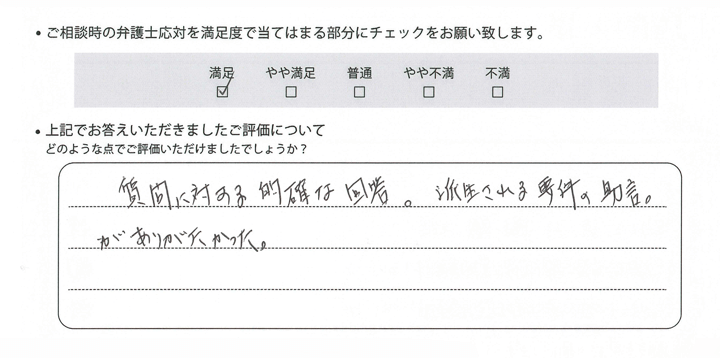 • ご相談時の弁護士応対を満足度で当てはまる部分にチェックをお願い致します。
満足 やや満足 普通 やや不満 不満
☑ □ □ □ □
• 上記でお答えいただきましたご評価について
どのような点でご評価いただけましたでしょうか？
質問に対する的確な回答。派生される要件の助言。
がありがたかった。